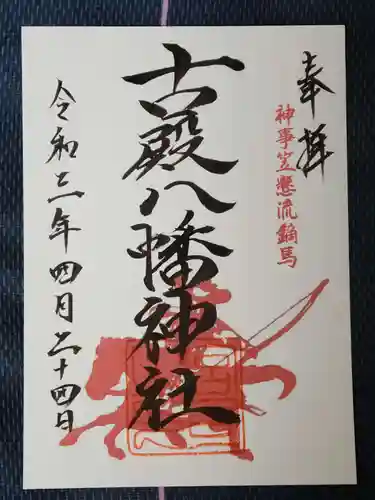 奉拝
神事笠懸流鏑馬
古殿八幡神社
令和三年四月二十四日